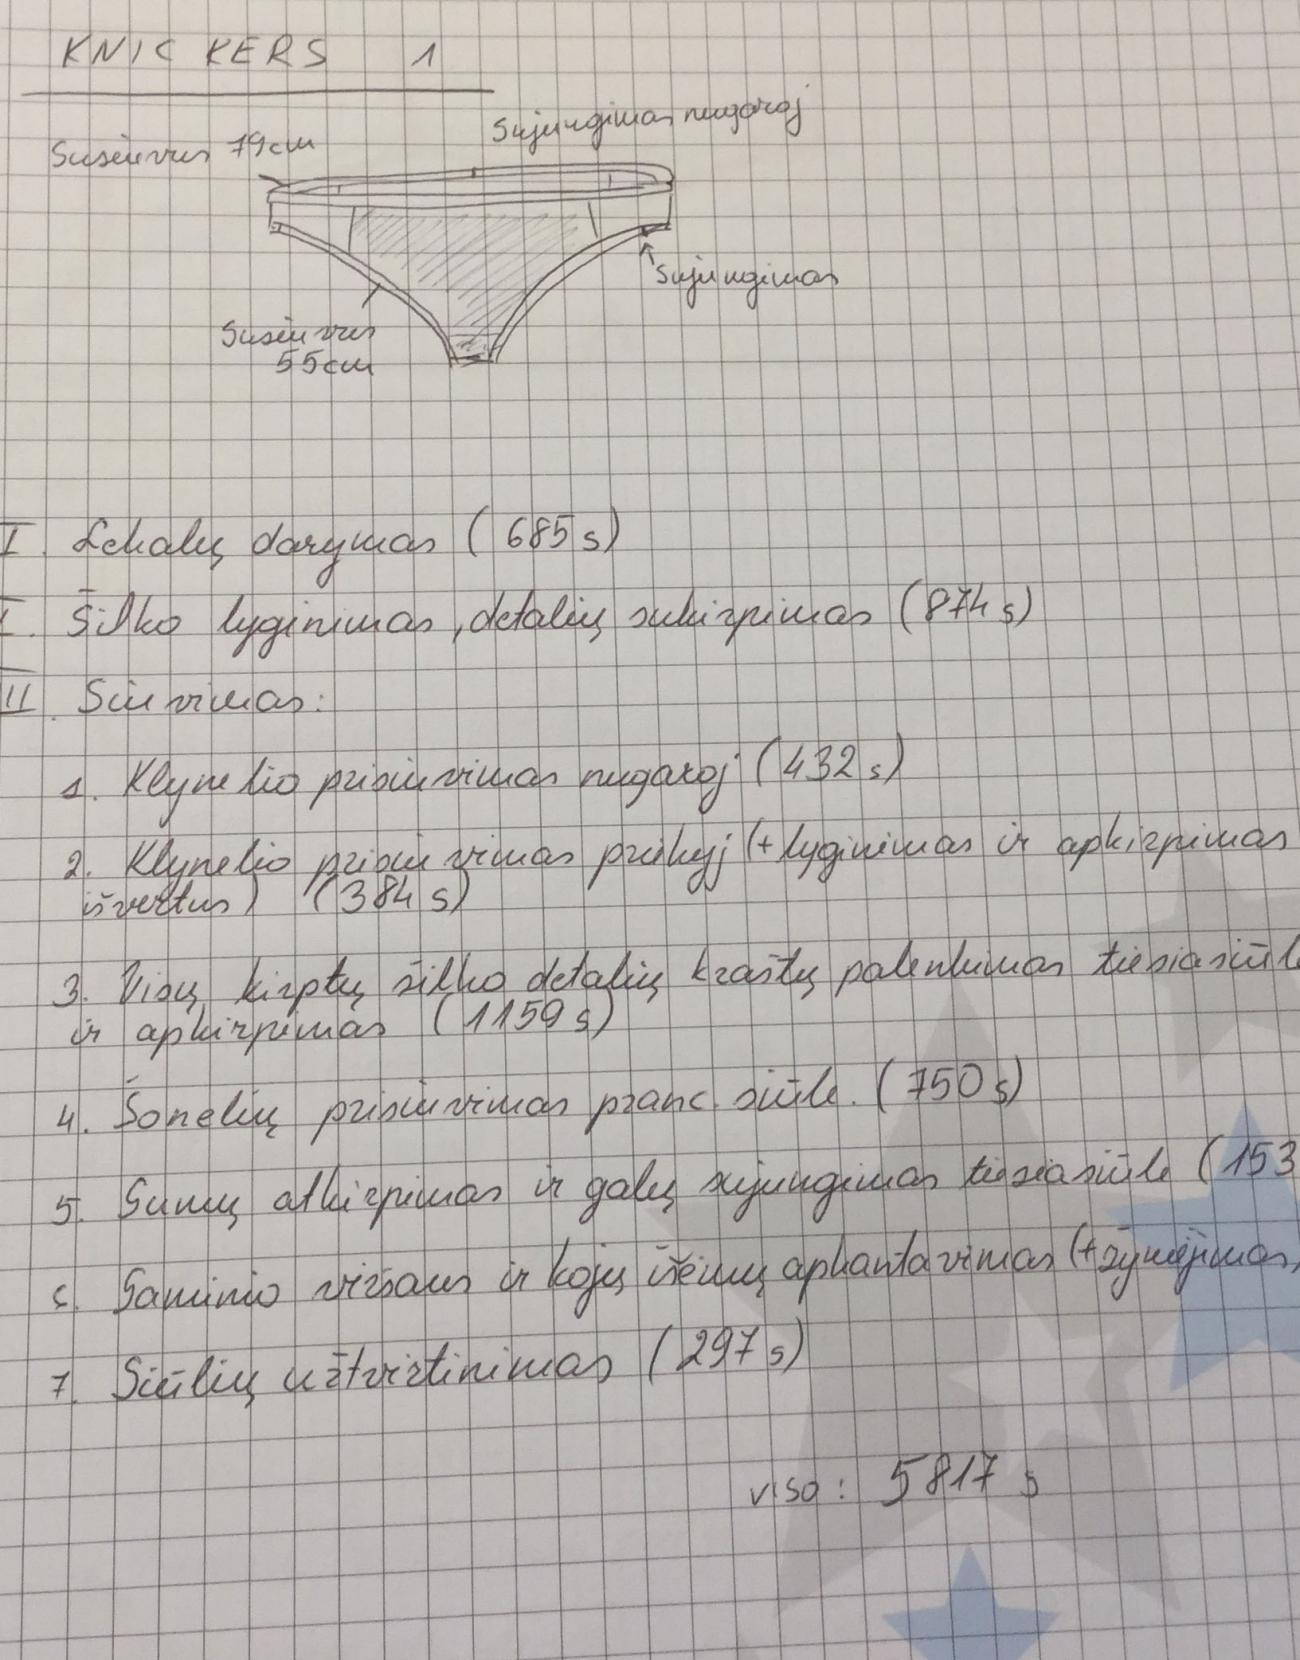 KNICKERS 1
Sujungimas nugaroj
Susiuvus 79cm
Sujungimas
Susiuvus
55cm
I. Lekalų darymas (685 s)
I. Šilko lyginimas, detalių sukirpimas (874 s)
II. Siuvimas:
1. Klynelio prisiuvimas nugaroj (432 s)
2. Klynelio prisiuvimas priekyj (+ lyginimas ir apkirpimas
išvertus) (384 s)
3. Visų kirptų šilko detalių kraštų palenkimas tiesiasiūle
ir apkirpimas (1159 s)
4. Šonelių prisiuvimas pranc. siūle. (750 s)
5. Gumų atkirpimas ir galų sujungimas tiesiasiūle (153
6. Gaminio viršaus ir kojų išėmų apkantavimas (+žymėjimas,
7. Siūlių užtvirtinimas (297 s)
viso: 5817 s